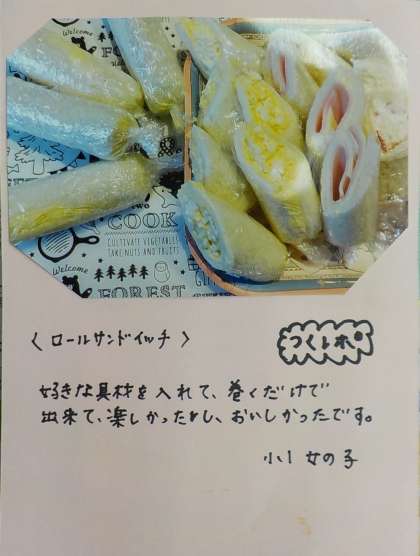 Welcome
FOREST
Two
COOK
CULTIVATE VEGETABLES
TAKE NUTS AND FRUITS
Welcome
FOREST
〈 ロールサンドイッチ 〉
つくレポ
好きな具材を入れて、巻くだけで
出来て、楽しかったし、おいしかったです。
小1 女の子